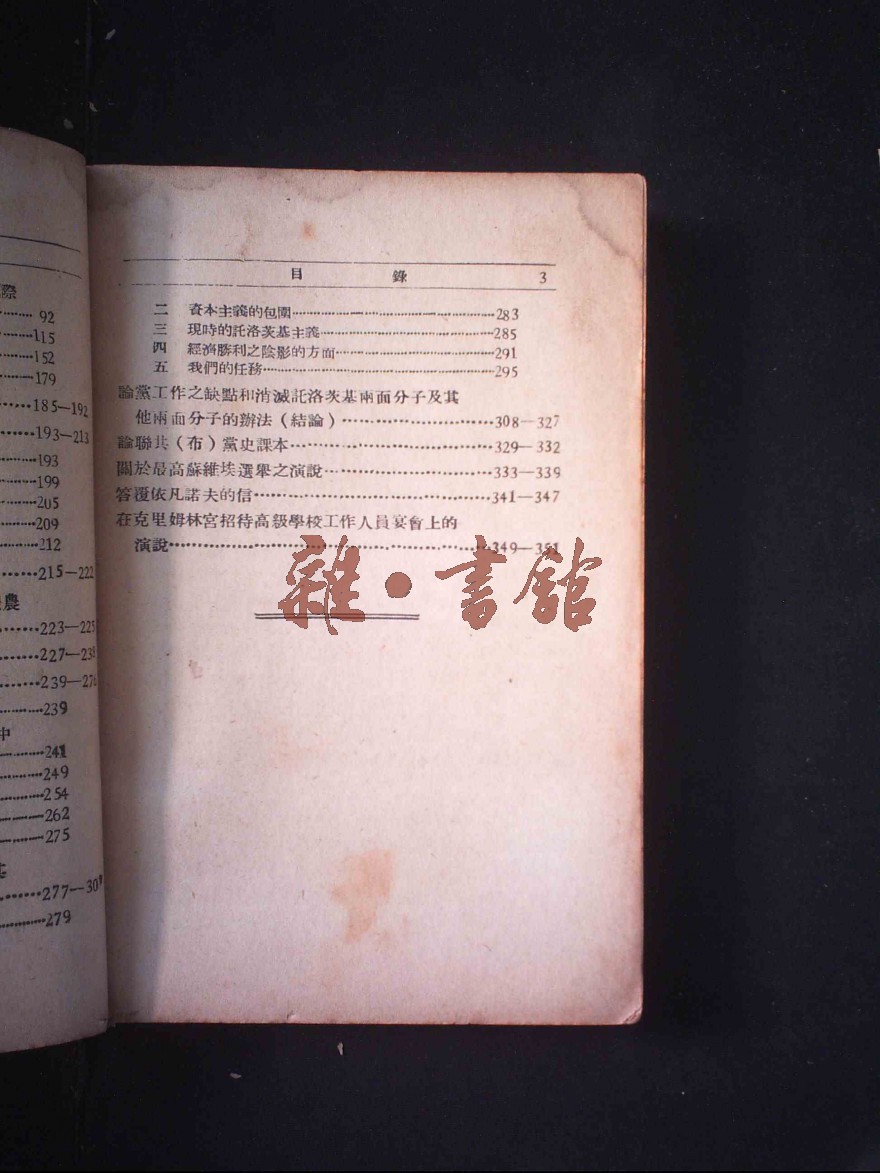 際
92
115
152
179
185—192
193—213
193
199
205
209
212
215—222
農
223—225
227—238
239—276
239
中
241
249
254
262
275
277—307
279
目 錄 3
二 資本主義的包圍……283
三 現時的託洛茨基主義……285
四 經濟勝利之陰影的方面……291
五 我們的任務……295
論黨工作之缺點和消滅託洛茨基兩面分子及其
他兩面分子的辦法(結論)……308—327
論聯共(布)黨史課本……329—332
關於最高蘇維埃選舉之演說……333—339
答覆依凡諾夫的信……341—347
在克里姆林宮招待高級學校工作人員宴會上的
演說……349—351
雜•書館